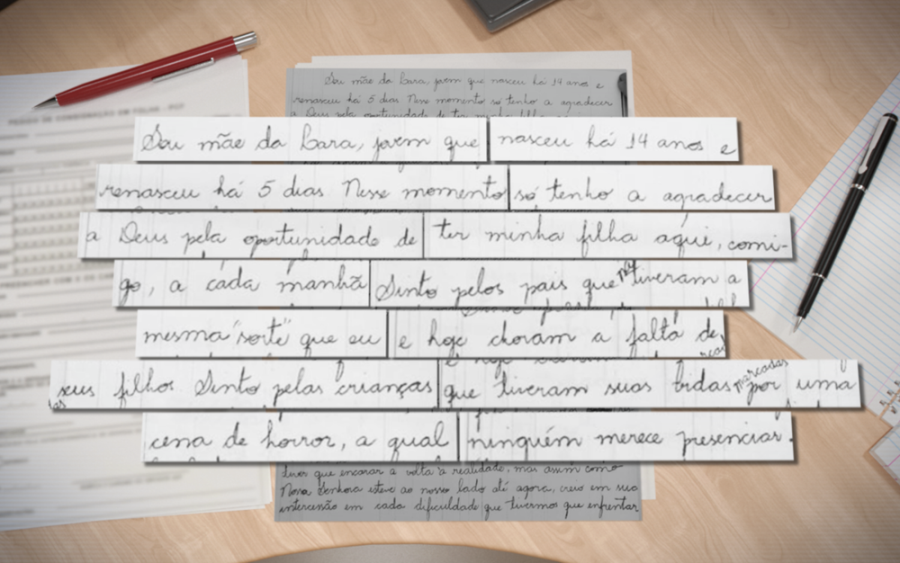 Sou mãe da Cara, jovem que nasceu há 14 anos e
renasceu há 5 dias Nesse momento só tenho a agradecer
a Deus pela oportunidade de ter minha filha aqui, comi-
go, a cada manhã Sinto pelos pais que não tiveram a
mesma "sorte" que eu e hoje choram a falta de
seus filhos Sinto pelas crianças que tiveram suas vidas marcadas por uma
cena de horror, a qual ninguém merece presenciar.
que encarar a volta à realidade, mas assim como
Nossa Senhora esteve ao nosso lado até agora, creio em sua
intercessão em cada dificuldade que tivermos que enfrentar